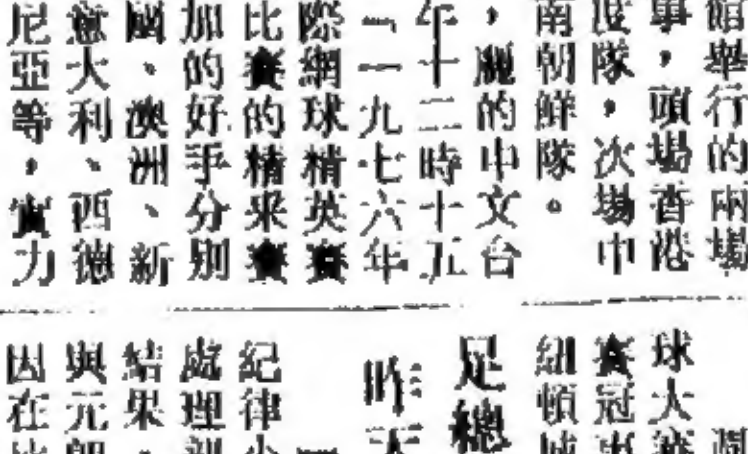 館舉行的兩場
事，頭場香港
度隊，次場中
南朝鮮隊。
，麗的中文台
午十二時十五
「一九七六年
際網球精英賽
比賽的精采賽
加的好手分別
國、澳洲、新
意大利、西德
尼亞等，實力
球大賽
賽冠
紐頓城
足總
昨天
紀律小
處理
結果，
與元朗
因在